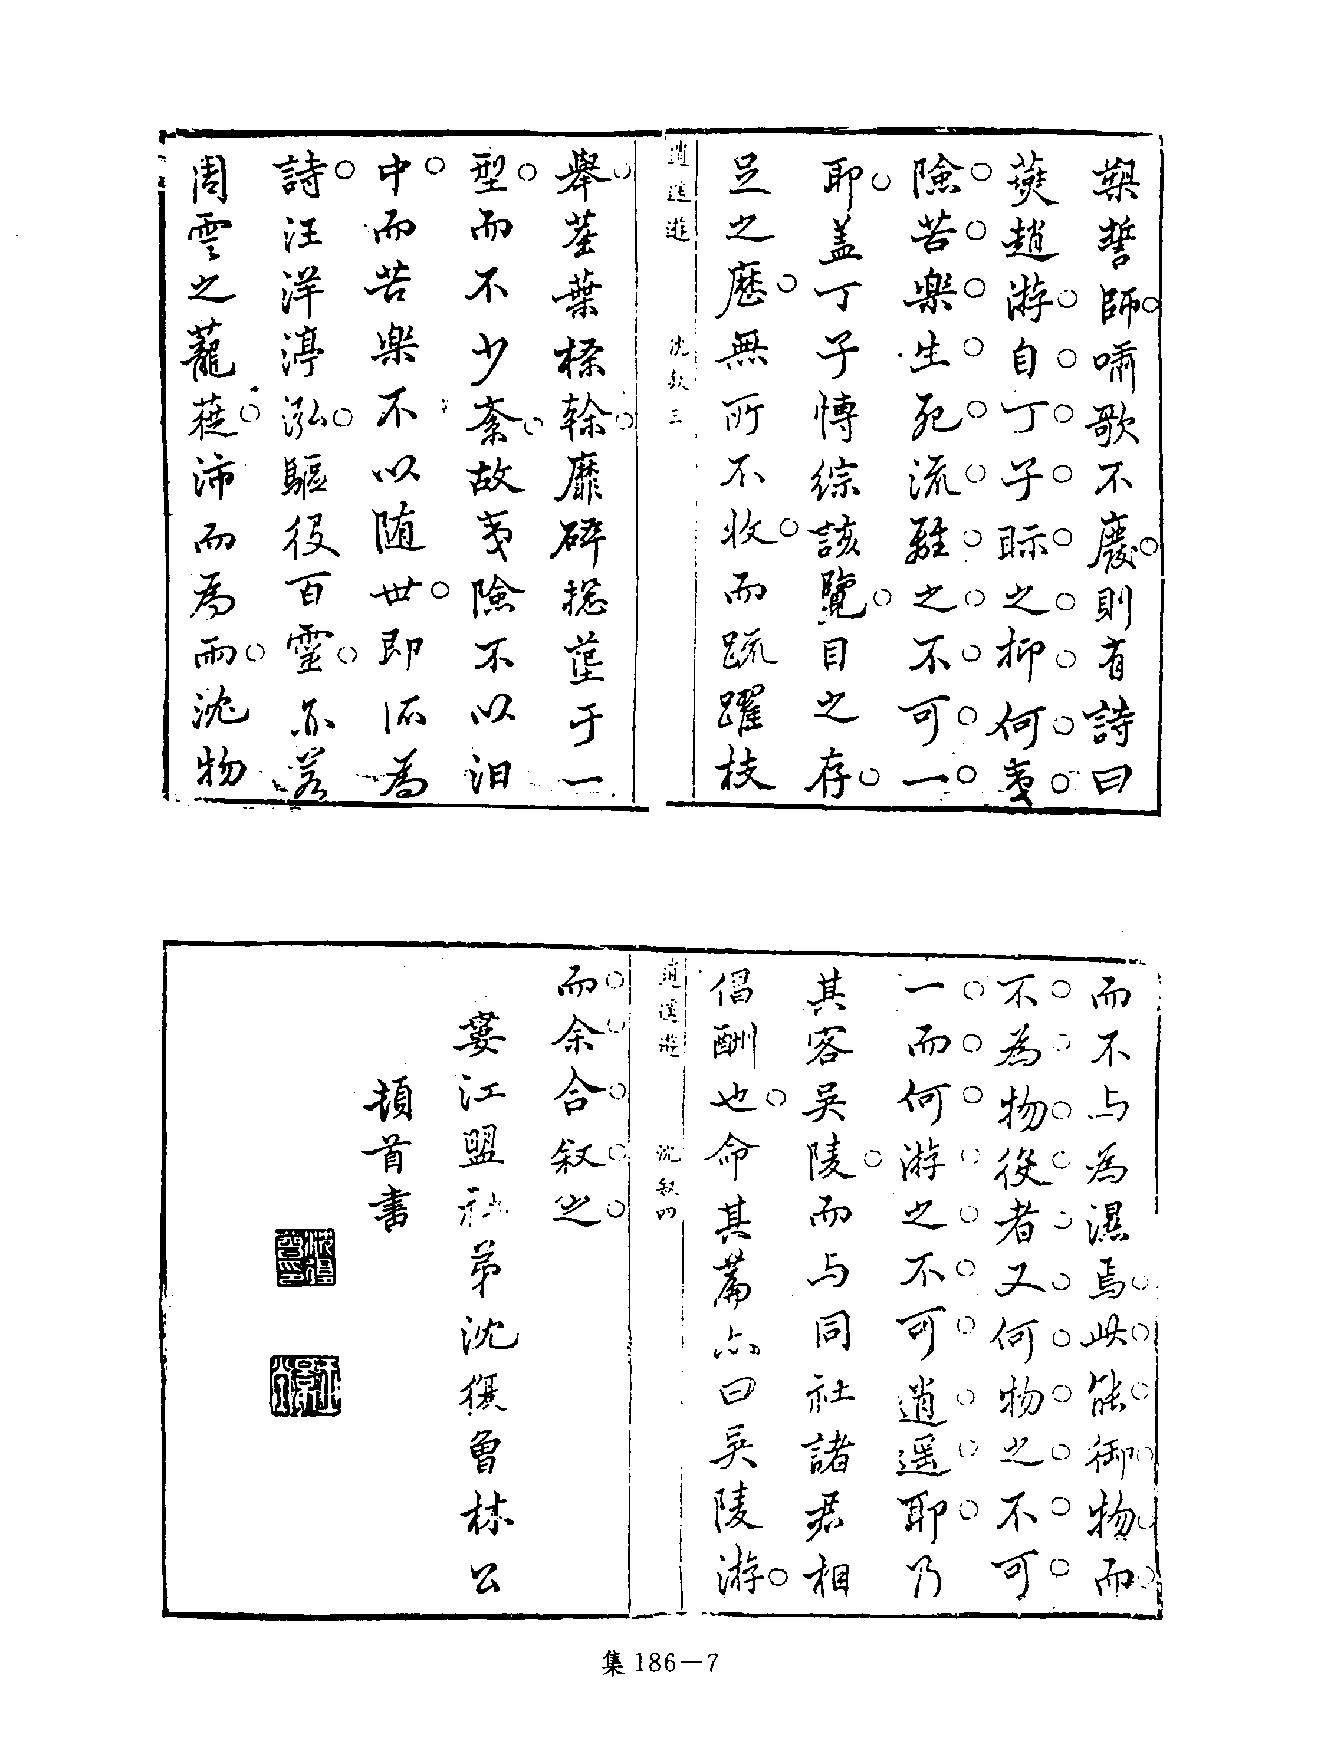 槊誓師嘯歌不廢則有詩曰
燕趙游自丁子眎之抑何夷
險苦樂生死流離之不可一
耶盖丁子博綜該覽目之存
足之歷無所不收而疏躍枝
逍遥遊 沈敘三
舉莖葉標榦靡碎摠萃于一
型而不少紊故夷險不以汩
中而苦樂不以随世即㳂為
詩汪洋渟泓驅役百靈亦若
周雲之蘢蓯沛而為雨沈物
而不与為濕焉此能御物而
不為物役者又何物之不可
一而何游之不可逍遥耶乃
其客吴陵而与同社諸君相
倡酬也命其篇亦曰吴陵游
逍遥遊 沈敘四
而余合叙之
婁江盟社弟沈復曾林公
頓首書
集 186－7